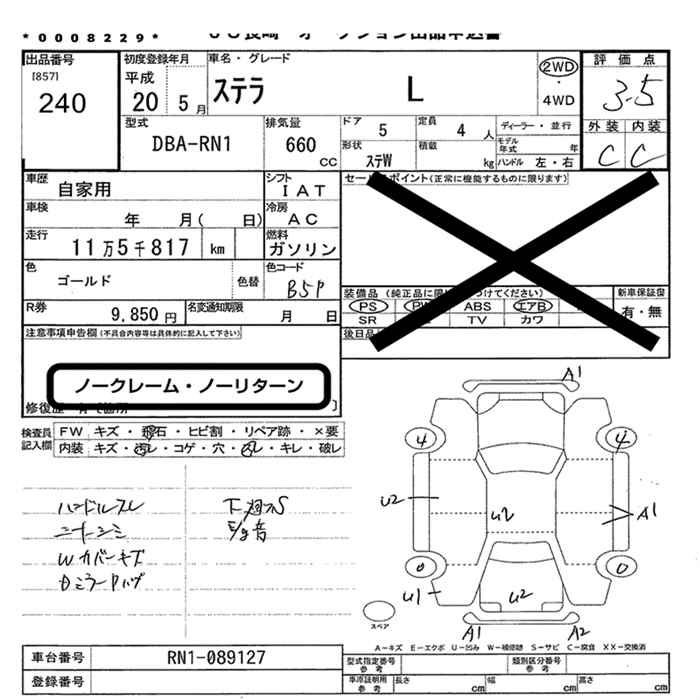 *0008229*
出品番号
[857]
240
初度登録年月
平成
20 5 月
車名・グレード
ステラ L
2WD
・
4WD
評価点
3.5
外装 内装
C C
型式
DBA-RN1
排気量
660
CC
ドア 5
定員 4 人
ディーラー・並行
形状 ステW
積載 kg
モデル年式 年
ハンドル 左・右
車歴
自家用
シフト
IAT
車検
年 月( 日)
冷房
AC
走行
11万5千817 km
燃料
ガソリン
色
ゴールド
色替
色コード
B5P
R券
9,850 円
名変通知期限
月 日
セールスポイント(正常に機能するものに限ります)
PS PW ABS エアB
SR TV カワ
新車保証書
有・無
後日品
注意事項申告欄(不具合内容等は具体的に記入して下さい)
ノークレーム・ノーリターン
検査員
記入欄
FW キズ・飛石・ヒビ割・リペア跡・×要
内装 キズ・汚レ・コゲ・穴・スレ・キレ・破レ
ハンドルスレ
シートシミ
Wカバーキズ
下廻りS
E/g音
A1
4 4
U2
U2
A1
0 0
U1
U2
A1 A2
スペア
A-キズ E-エクボ U-凹み W-補修跡 S-サビ C-腐食 XX-交換済
車台番号 RN1-089127
登録番号
型式指定番号
参考
類別区分番号
参考
車庫証明用
参考
長さ cm 幅 cm 高さ cm